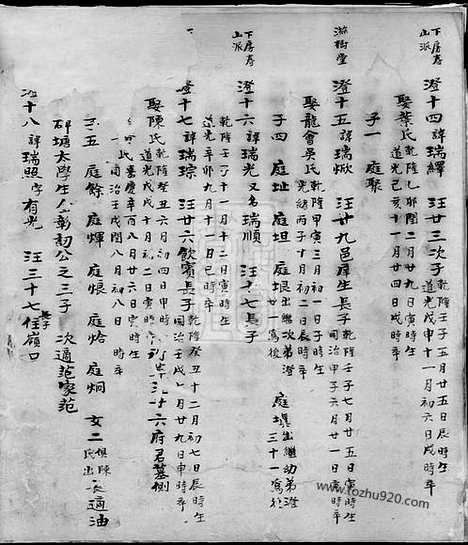 下房寿山派
澄十四諱瑞繹 汪廿三次子
乾隆壬子五月廿五日辰時生
道光戊申十一月初六日戌時卒
娶葉氏
乾隆乙卯閏二月廿九日寅時生
道光己亥十一月廿四日戌時卒
子一 庭聚
澄十五諱瑞焮 汪廿九邑庠生長子
乾隆壬子七月廿五日寅時生
同治甲子六月廿一日寅時卒
娶龍會吳氏
乾隆甲寅三月初一日子時生
丙子十月初二日辰時卒
子四 庭址 庭坦 庭垠
出継次弟澄廿一為後
庭塡
出継幼弟澄三十一為後
下房寿山派
澄十六諱瑞光又名瑞順 汪十七長子
乾隆壬子十一月十二日寅時生
道光辛卯九月十一日巳時卒
十七諱瑞琮 汪廿六飲賓長子
乾隆癸丑十二月初七日辰時生
同治壬戌 月廿九日申時卒
娶陳氏
乾隆癸丑六月初四日申時
道光戊戌十月初二日寅時
廿六府君墓側
氏
嘉慶 八月廿六日寅時生
同治壬戌閏八月初八日 時卒
子五 庭餘 庭煇 庭烺 庭焀 庭炯 女二
俱陳氏出
長適油
邨塘太學生 公之三子 次適范家范
澄十八諱瑞照字有光 汪三十七任嶺口
長子
www.tozhu920.com